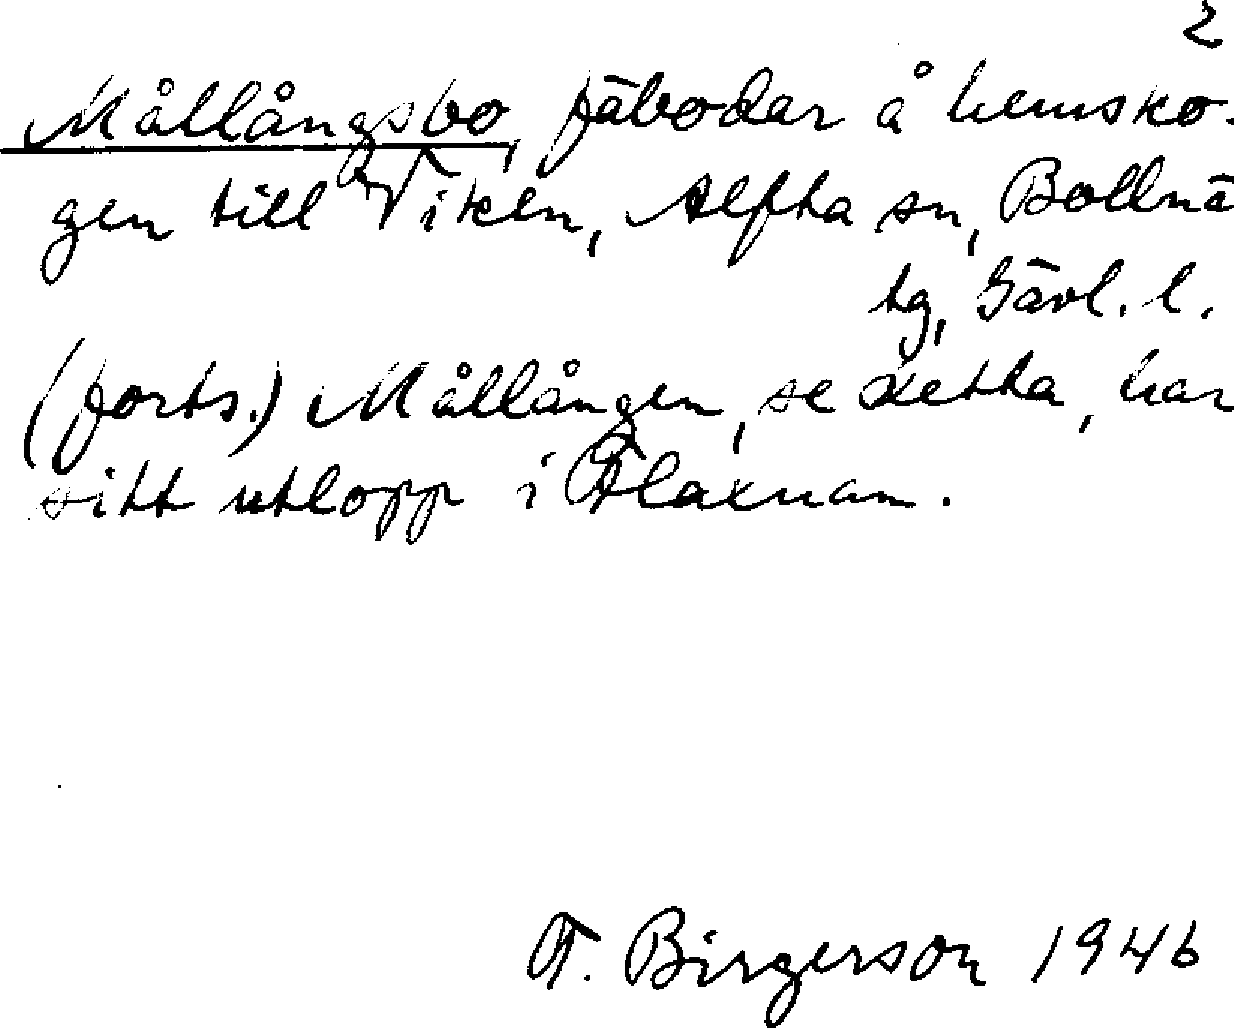 2
Mållångsbo, fäbodar å hemsko-
gen till Viken, Alfta sn, Bollnä
tg, Gävl. l.
(forts.) Mållången, se detta, har
sitt utlopp i Flaxnan.
T. Birgerson 1946